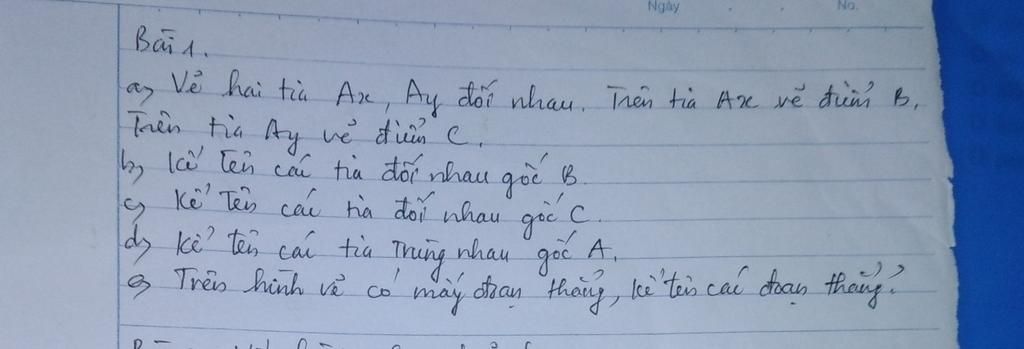 Ngày No.
Bài 1.
a, Vẽ hai tia Ax, Ay đối nhau. Trên tia Ax vẽ điểm B,
Trên tia Ay vẽ điểm C.
b, Kể tên các tia đối nhau gốc B.
c, Kể tên các tia đối nhau gốc C.
d, Kể tên các tia trùng nhau gốc A.
e, Trên hình vẽ có mấy đoạn thẳng, kể tên các đoạn thẳng?